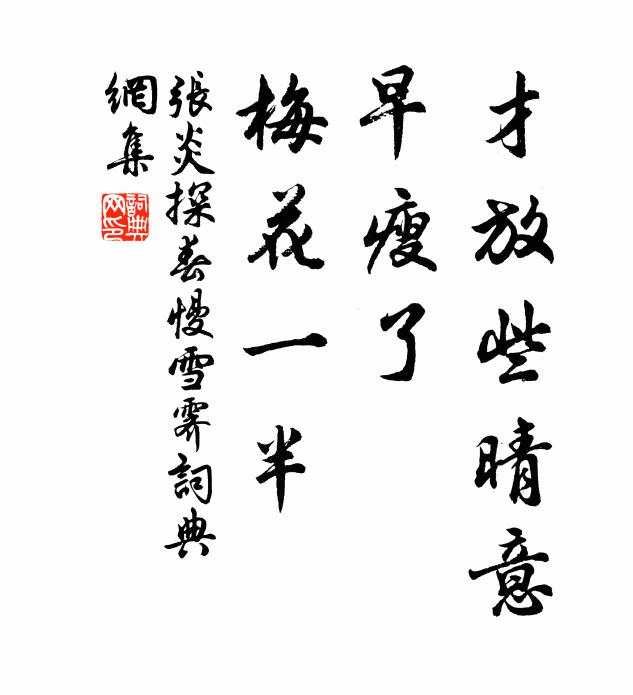 才放些晴意
早瘦了
梅花一半
張炎探春慢雪霽詞典
網集
詞典
网印